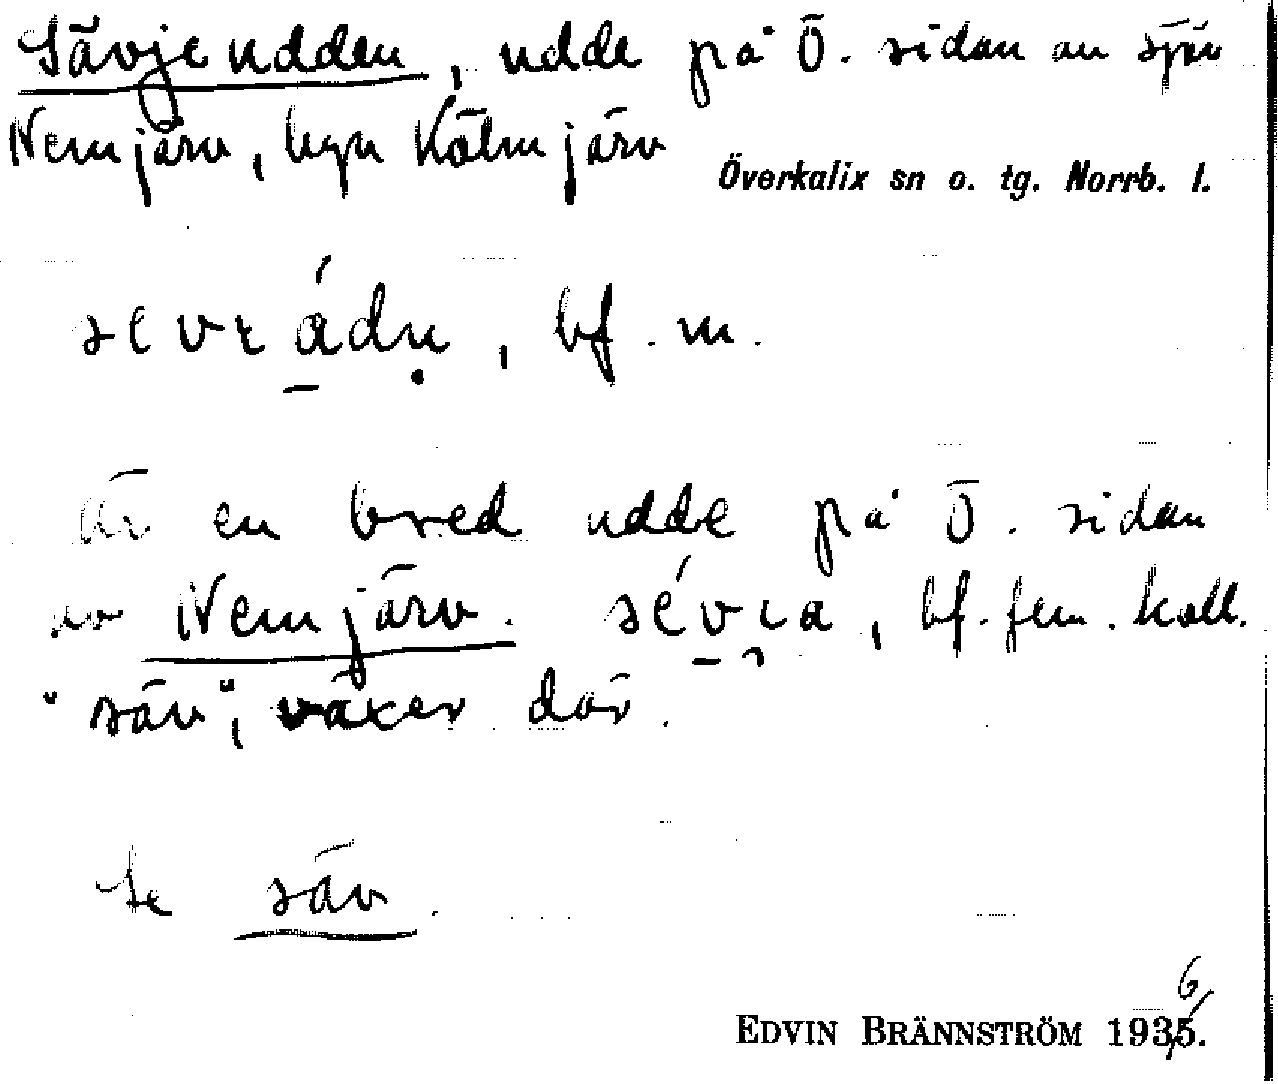 Sävjeudden, udde på Ö. sidan av sjön
Nemjärv, byn Kälmjärv
Överkalix sn o. tg. Norrb. l.
sevrádṇ, bf. m.
Är en bred udde på Ö. sidan
av Nemjärv. sévra, bf. fem. koll.
"säv", växer där.
Se säv.
EDVIN BRÄNNSTRÖM 1936.